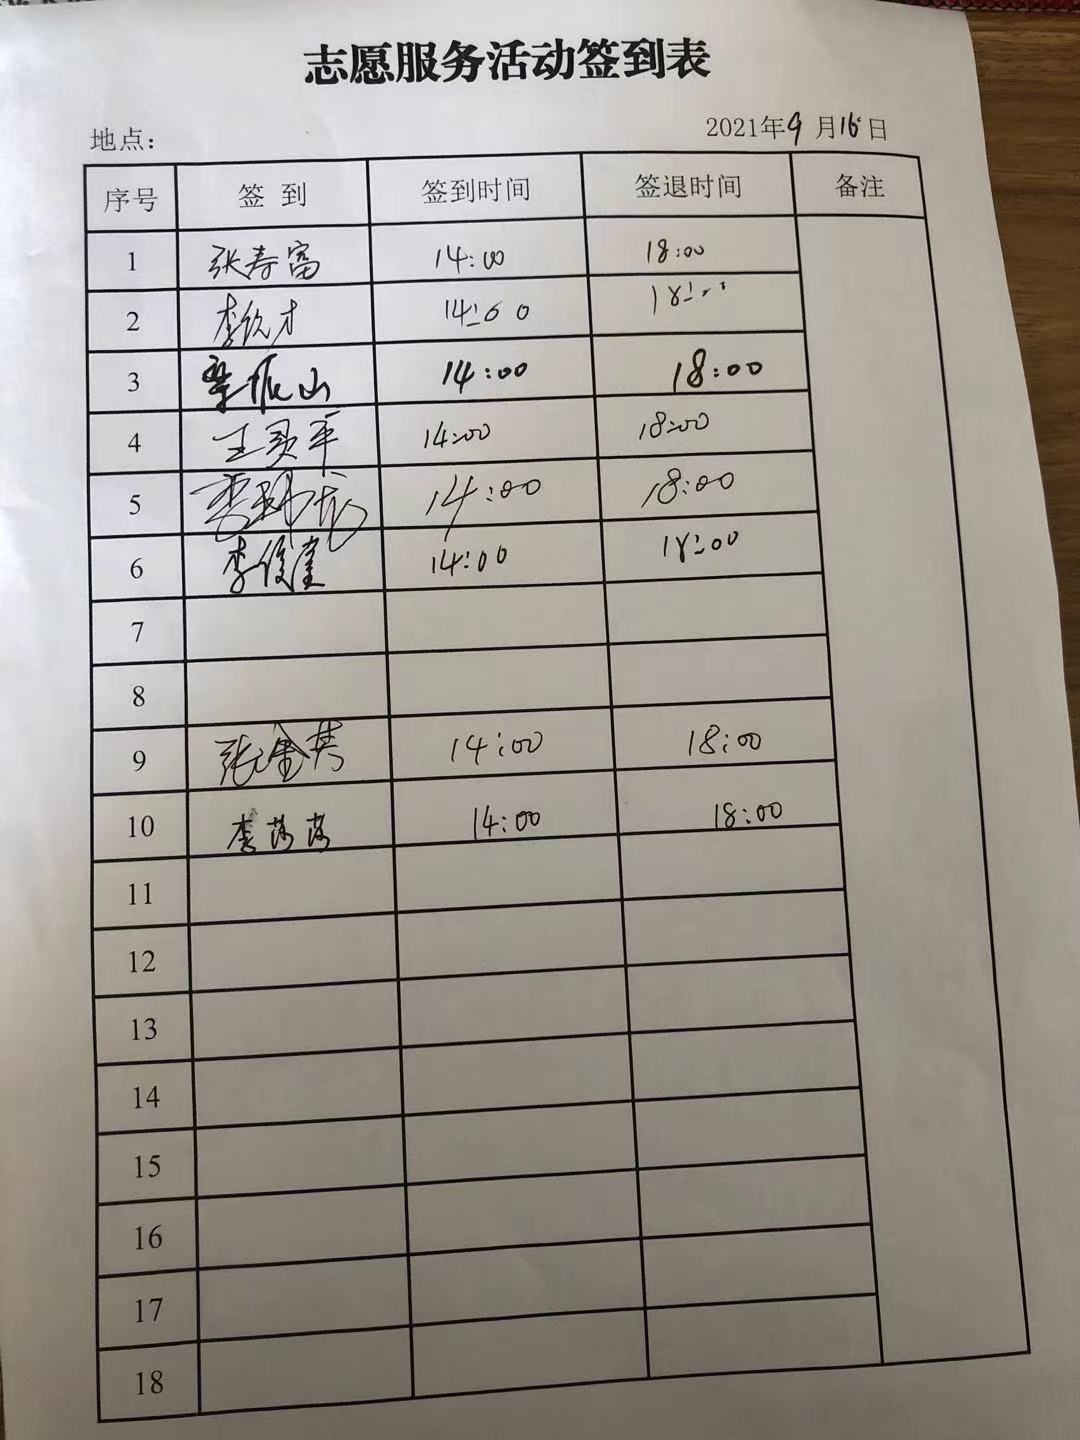 志愿服务活动签到表
地点： 2021年9月16日
序号 签 到 签到时间 签退时间 备注
1 张寿富 14:00 18:00
2 李钦才 14:00 18:00
3 振山 14:00 18:00
4 王灵平 14:00 18:00
5 李 龙 14:00 18:00
6 李俊堂 14:00 18:00
7
8
9 张金其 14:00 18:00
10 李荔荔 14:00 18:00
11
12
13
14
15
16
17
18